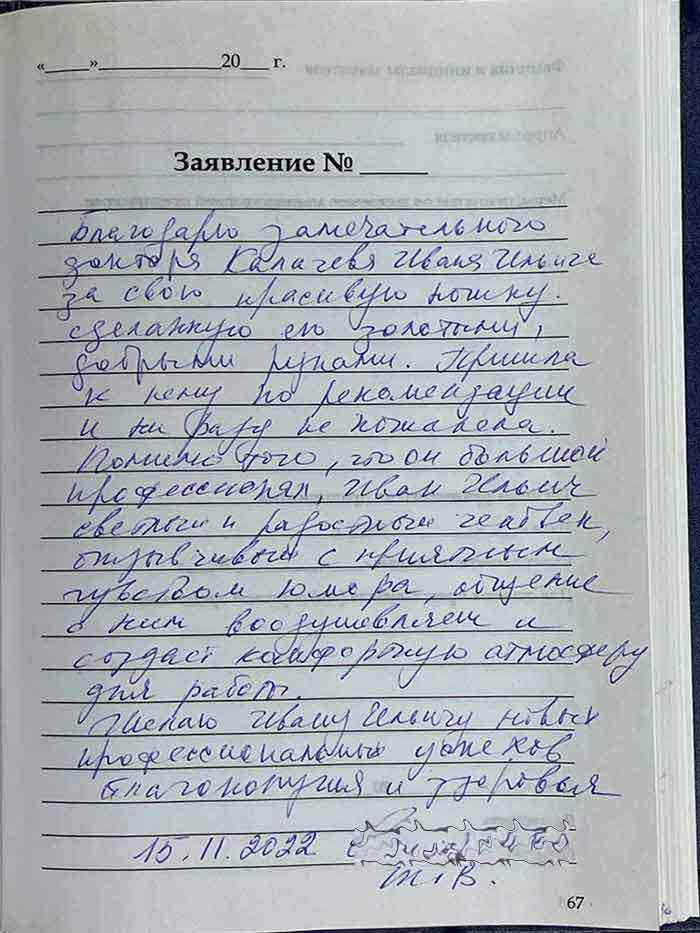 «_____»______________20___ г.
Заявление № _____
Благодарю замечательного
доктора Калачева Ивана Ильича
за свою красивую ножку.
сделанную его золотыми,
добрыми руками. Пришла
к нему по рекомендации
и ни разу не пожалела.
Помимо того, что он большой
профессионал, Иван Ильич
светлый и радостный человек,
отзывчивый с приятным
чувством юмора, общение
с ним воодушевляет и
создаёт комфортную атмосферу
для работы.
Желаю Ивану Ильичу новых
профессиональных успехов
благополучия и здоровья
15.11.2022 с
Т.В.
67